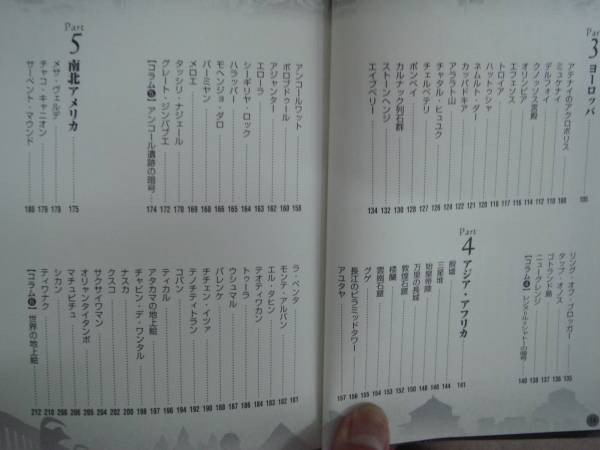 Part
3 ヨーロッパ
アテナイのアクロポリス 108
ミュケナイ 110
デルフォイ 112
クノッソス宮殿 114
オリンピア 116
エフェソス 117
トロイア 118
ハットゥシャ 120
ネムルト・ダー 121
カッパドキア 122
アララト山 124
チャタル・ヒュユク 126
チェルベテリ 127
ポンペイ 128
カルナック列石群 130
ストーンヘンジ 132
エイブベリー 134
リング・オブ・ブロッガー 135
タップ・オノス 136
ゴトランド島 137
ニューグレンジ 138
【コラム④】レンヌ=ル=シャトーの暗号 140
Part
4 アジア・アフリカ 141
殷墟 144
三星堆 146
始皇帝陵 148
万里の長城 150
敦煌石窟 152
楼蘭 153
雲崗石窟 154
グゲ 155
長江のピラミッドタワー 156
アユタヤ 157
アンコールワット 158
ボロブドゥール 160
アジャンター 162
エローラ 163
シーギリヤ・ロック 164
ハラッパー 165
モヘンジョ・ダロ 166
バーミヤン 168
メロエ 169
タッシリ・ナジェール 170
グレート・ジンバブエ 172
【コラム⑤】アンコール遺跡の暗号 174
Part
5 南北アメリカ 175
メサ・ヴェルデ 178
チャコ・キャニオン 179
サーペント・マウンド 180
ラ・ベンタ 181
モンテ・アルバン 182
エル・タヒン 183
テオティワカン 184
トゥーラ 186
ウシュマル 187
パレンケ 188
チチェン・イツァ 190
テノチティトラン 192
コパン 194
ティカル 196
アタカマの地上絵 198
チャビン・デ・ワンタル
ナスカ
クスコ
サクサイワマン 204
オリャンタイタンボ 205
マチュピチュ 206
シカン
ティワナク 210
【コラム⑥】世界の地上絵 212